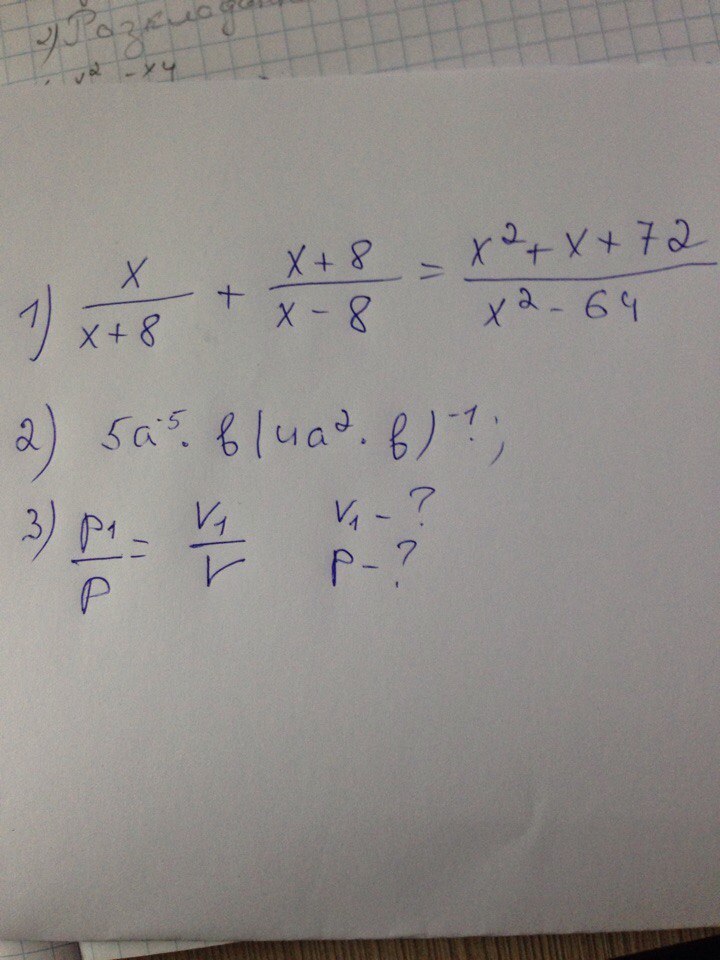 2) Розкладан
x² - x4
1) x/(x+8) + (x+8)/(x-8) = (x²+x+72)/(x²-64)
2) 5a⁻⁵·в(4a²·в)⁻¹;
3) P₁/P = V₁/V V₁ - ?
P - ?